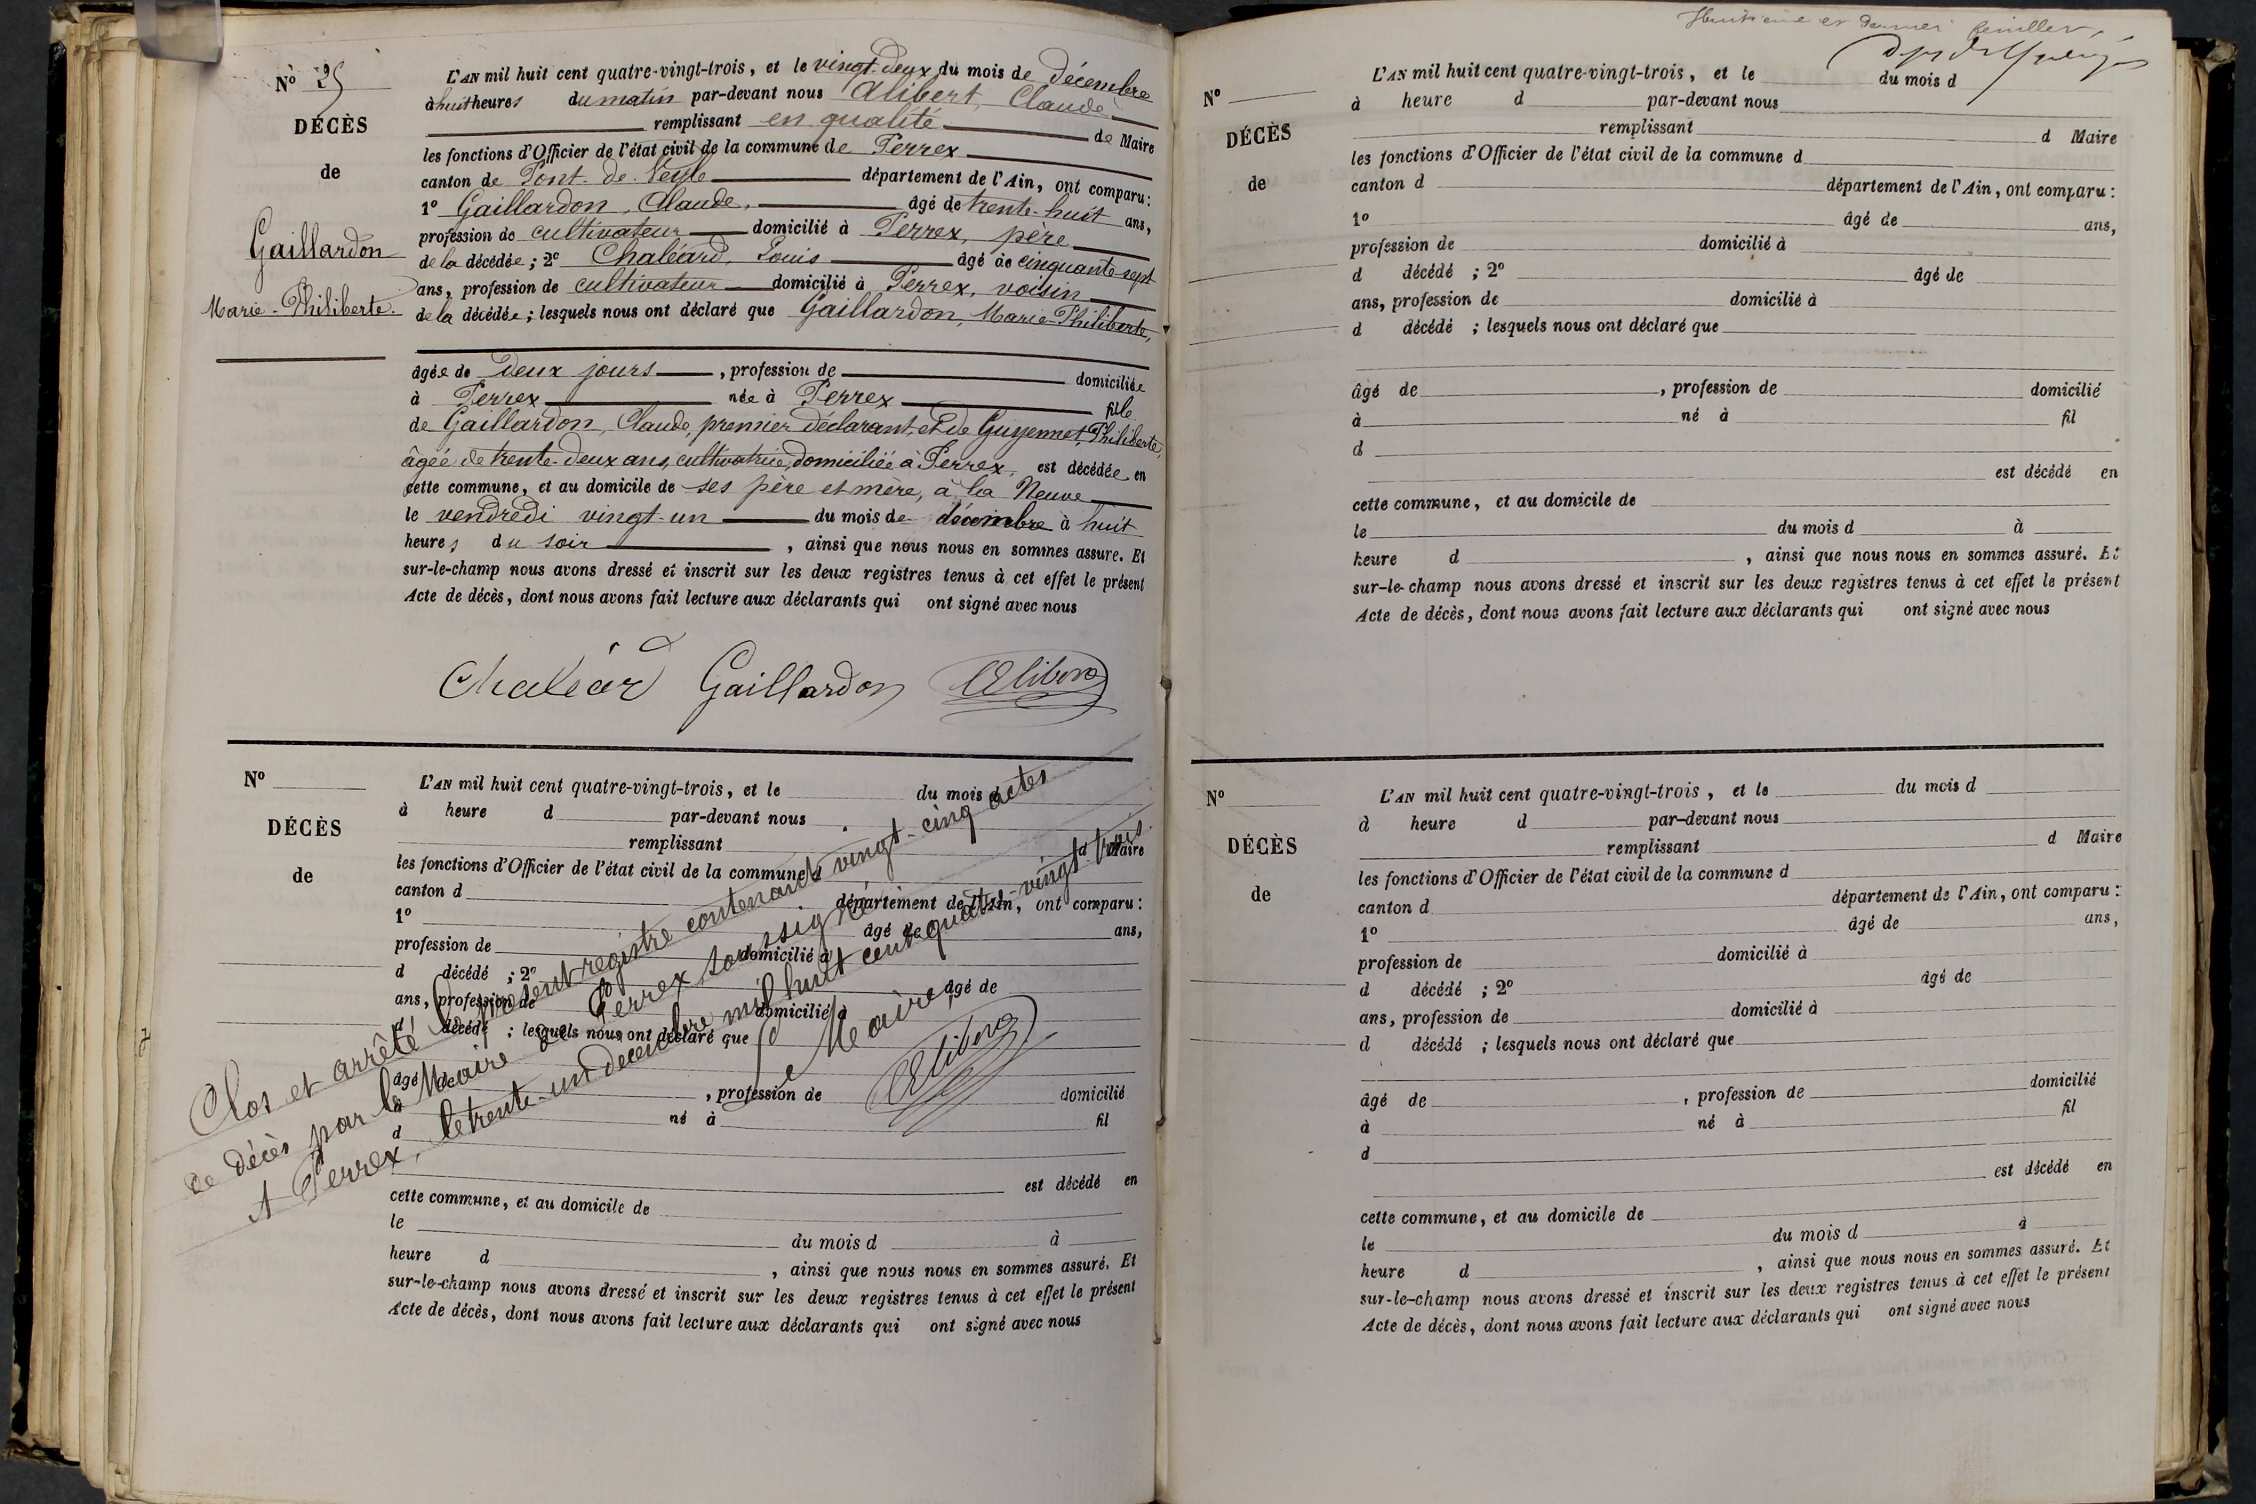 Nº 25
DÉCÈS
de
Gaillardon
Marie-Philiberte
L'AN mil huit cent quatre-vingt-trois, et le vingt-deux du mois de décembre
à huit heures du matin par-devant nous Alibert, Claude
remplissant en qualité de Maire
les fonctions d'Officier de l'état civil de la commune de Perrex
canton de Pont-de-Veyle département de l'Ain, ont comparu :
1º Gaillardon, Claude, âgé de trente-huit ans,
profession de cultivateur domicilié à Perrex, père
de la décédée ; 2º Chaléard, Louis âgé de cinquante-sept
ans, profession de cultivateur domicilié à Perrex, voisin
de la décédée ; lesquels nous ont déclaré que Gaillardon, Marie-Philiberte,
âgée de deux jours, profession de domiciliée
à Perrex née à Perrex fille
de Gaillardon, Claude, premier déclarant, et de Guyennet, Philiberte,
âgée de trente-deux ans, cultivatrice, domiciliée à Perrex, est décédée en
cette commune, et au domicile de ses père et mère, à la Neuve
le vendredi vingt-un du mois de décembre à huit
heures du soir, ainsi que nous nous en sommes assuré. Et
sur-le-champ nous avons dressé et inscrit sur les deux registres tenus à cet effet le présent
Acte de décès, dont nous avons fait lecture aux déclarants qui ont signé avec nous
Chaléard Gaillardon Alibert
Nº
DÉCÈS
de
L'AN mil huit cent quatre-vingt-trois, et le du mois d
à heure d par-devant nous
remplissant d Maire
les fonctions d'Officier de l'état civil de la commune d
canton d département de l'Ain, ont comparu :
1º âgé de ans,
profession de domicilié à
d décédé ; 2º âgé de
ans, profession de domicilié à
d décédé ; lesquels nous ont déclaré que
âgé de, profession de domicilié
à né à fil
d
est décédé en
cette commune, et au domicile de
le du mois d à
heure d, ainsi que nous nous en sommes assuré. Et
sur-le-champ nous avons dressé et inscrit sur les deux registres tenus à cet effet le présent
Acte de décès, dont nous avons fait lecture aux déclarants qui ont signé avec nous
Clos et arrêté le présent registre contenant vingt-cinq actes
de décès par le Maire de Perrex soussigné
A Perrex, le trente-un décembre mil huit cent quatre-vingt-trois.
Le Maire,
Alibert
Huitième et dernier feuillet,
Nº
DÉCÈS
de
L'AN mil huit cent quatre-vingt-trois, et le du mois d
à heure d par-devant nous
remplissant d Maire
les fonctions d'Officier de l'état civil de la commune d
canton d département de l'Ain, ont comparu :
1º âgé de ans,
profession de domicilié à
d décédé ; 2º âgé de
ans, profession de domicilié à
d décédé ; lesquels nous ont déclaré que
âgé de, profession de domicilié
à né à fil
d
est décédé en
cette commune, et au domicile de
le du mois d à
heure d, ainsi que nous nous en sommes assuré. Et
sur-le-champ nous avons dressé et inscrit sur les deux registres tenus à cet effet le présent
Acte de décès, dont nous avons fait lecture aux déclarants qui ont signé avec nous
Nº
DÉCÈS
de
L'AN mil huit cent quatre-vingt-trois, et le du mois d
à heure d par-devant nous
remplissant d Maire
les fonctions d'Officier de l'état civil de la commune d
canton d département de l'Ain, ont comparu :
1º âgé de ans,
profession de domicilié à
d décédé ; 2º âgé de
ans, profession de domicilié à
d décédé ; lesquels nous ont déclaré que
âgé de, profession de domicilié
à né à fil
d
est décédé en
cette commune, et au domicile de
le du mois d à
heure d, ainsi que nous nous en sommes assuré. Et
sur-le-champ nous avons dressé et inscrit sur les deux registres tenus à cet effet le présent
Acte de décès, dont nous avons fait lecture aux déclarants qui ont signé avec nous